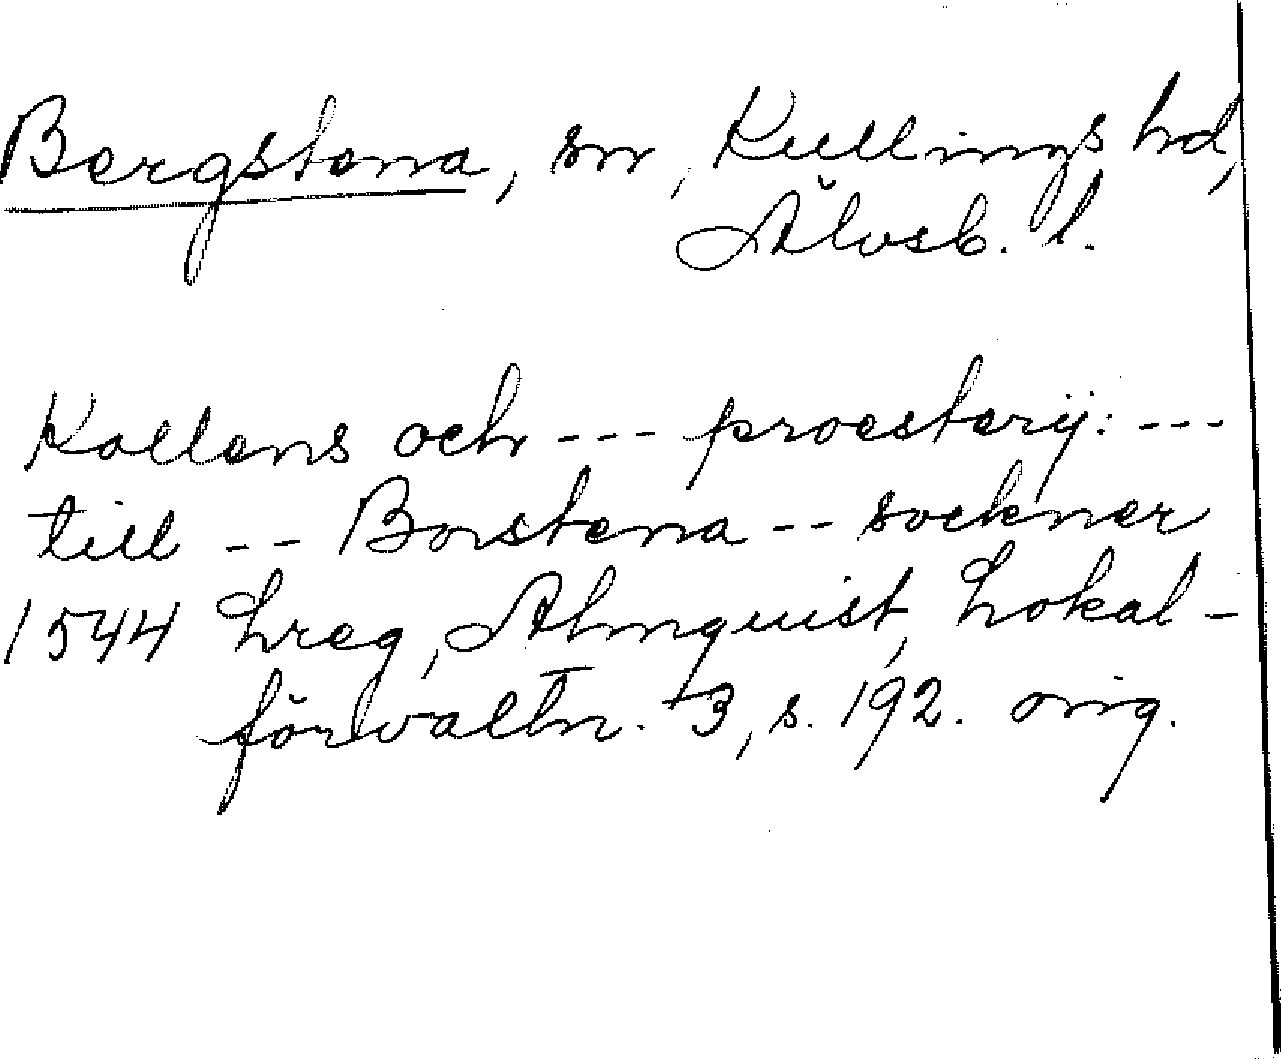 Bergstena, sn, Kullings hd,
Älvsb. l.
Kallans och --- proesterij: ---
till -- Borstena -- socknar
1544 Lreg, Almquist, Lokal-
förvaltn. 3, s. 192. orig.